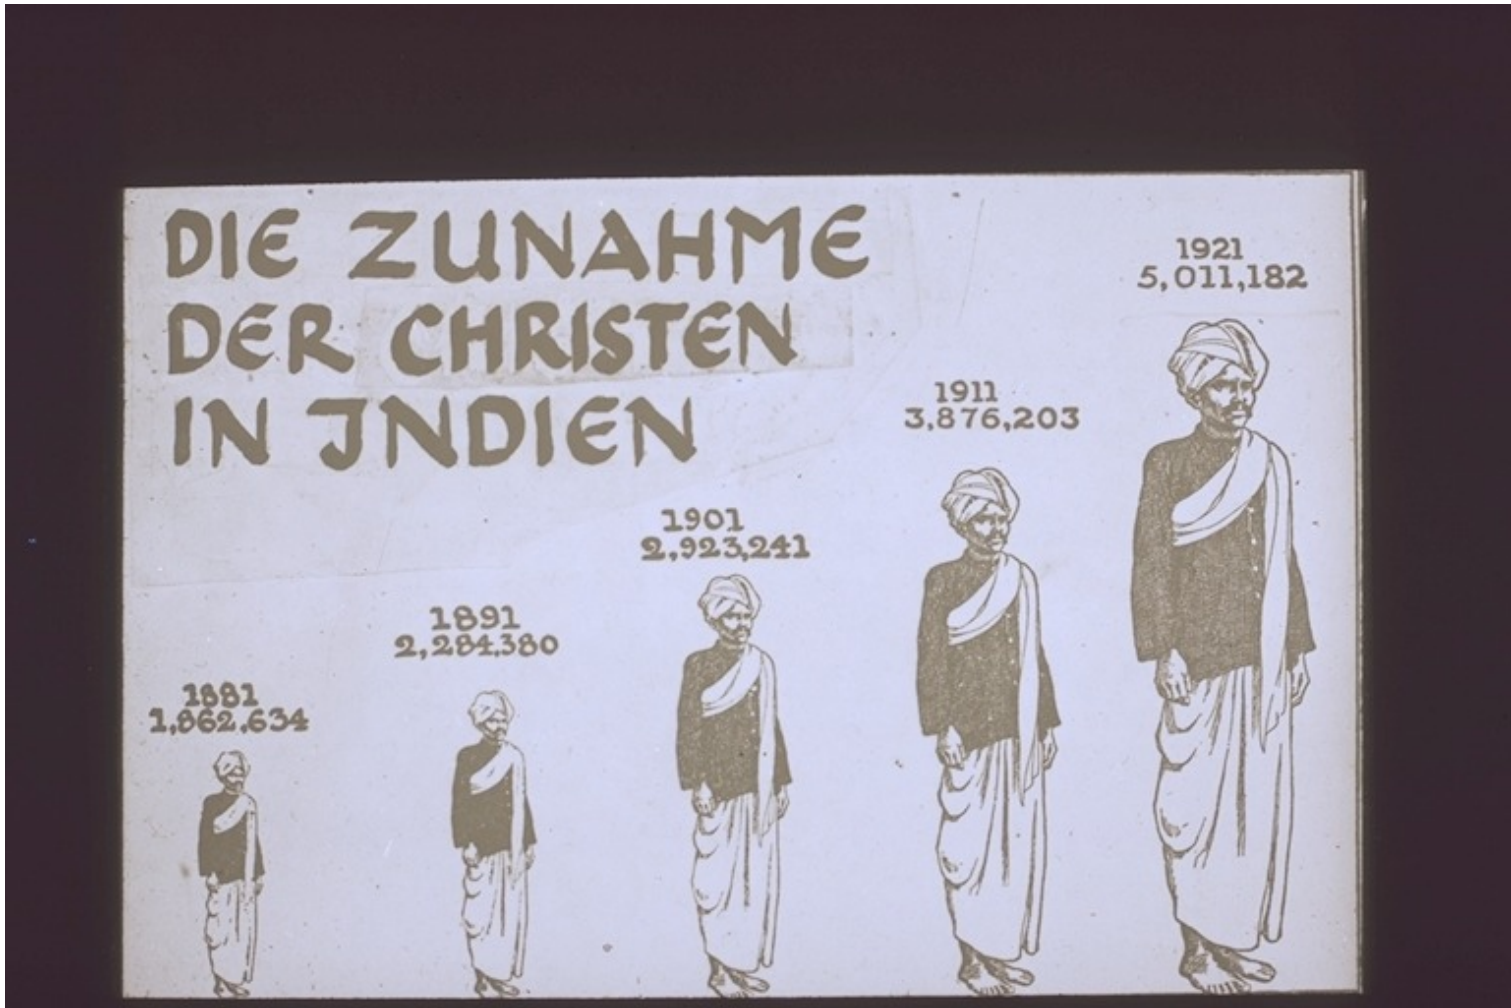 DIE ZUNAHME
DER CHRISTEN
IN INDIEN
1881
1,862,634
1891
2,284,380
1901
2,923,241
1911
3,876,203
1921
5,011,182